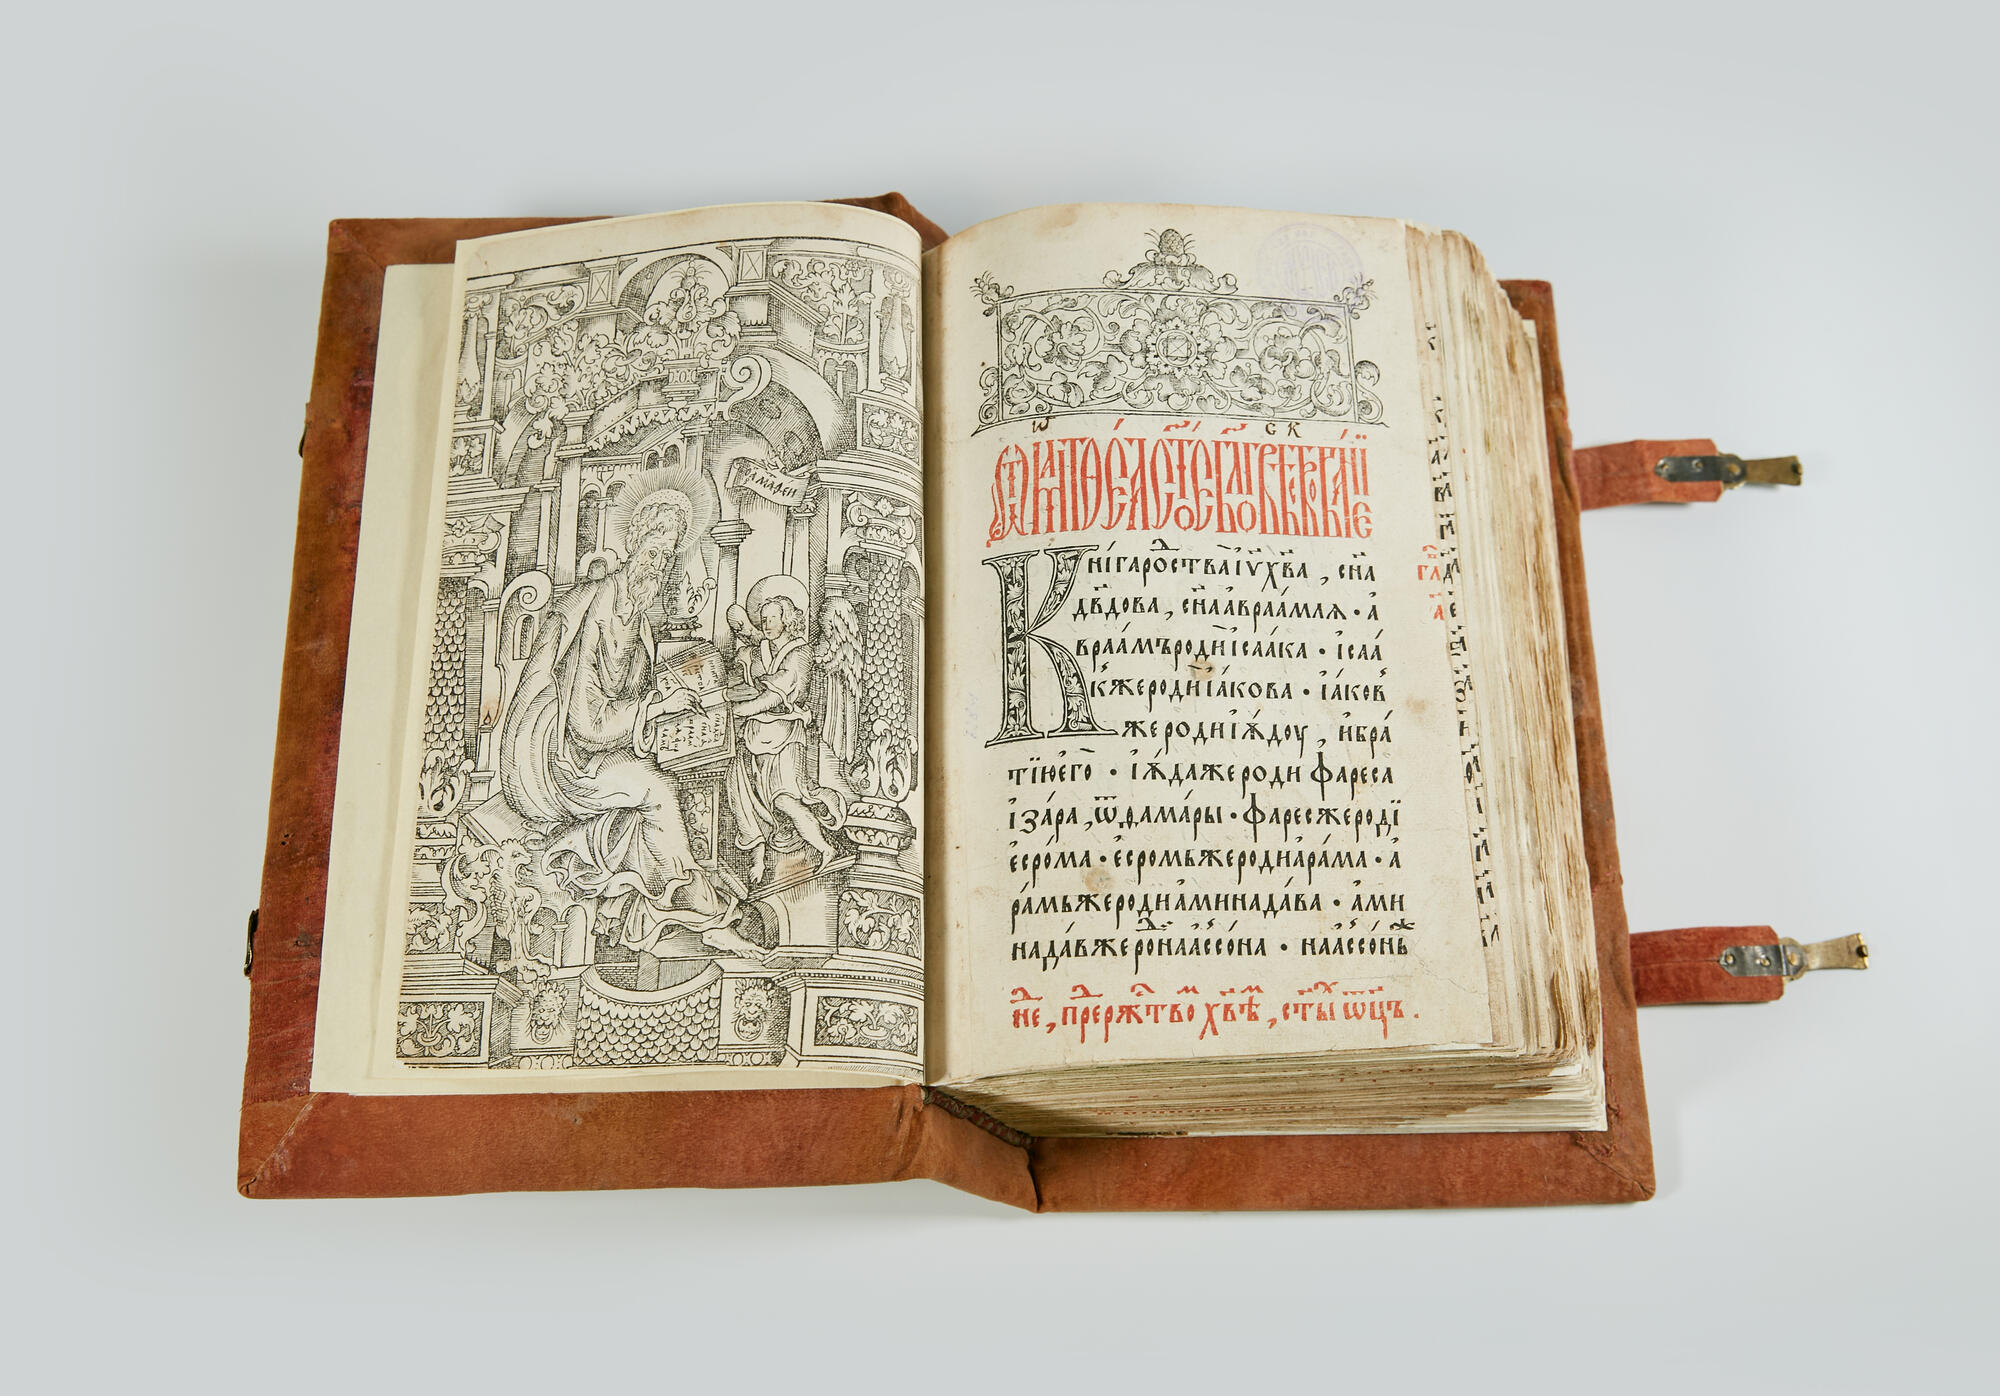 амѳеи
ѿ                    СК
Ѿ матѳеа стое бл҃говѣствованїе
Кни́га рос̾тва̀ і҆у҃ хв҃а , сн҃а
дв҃дова , сн҃а а҆враа́млѧ · а҆
враа́мъ роди̾ і҆саа́ка · і҆саа́
к̾же роди̾ і҆а́кова · і҆а́ков̾
же роди̾ і҆ю́доу , и҆ бра́
тїю є҆го̀ · і҆ю́да же роди̾ фа́реса
і҆ за́ра , ѿ ѳама́ры · фа́рес же роди̾
є҆сро́ма · є҆сро́мь же роди̾ а҆ра́ма · а҆
ра́мь же роди̾ а҆минада́ва · а҆ми
нада́вь же ро наассо́на · наассо́нь
гл
а
не , пре рж҃тво хв҃ѣ , ст҃ы ѿц҃ъ .